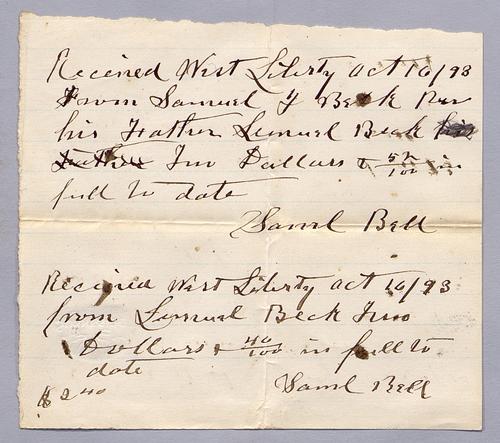 Received West Liberty Oct 16/93
From Samuel J Beck Per
his Father Lemuel Beck his
Father Two Dollars & 52/100 in
full to date
Saml Bell
Received West Liberty Oct 16/93
from Lemuel Beck Two
Dollars & 40/100 in full to
date
$2 40
Saml Bell